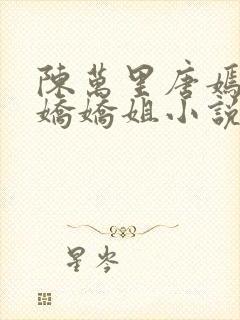 陳萬里唐嫣
嬌嬌姐小說
星岑